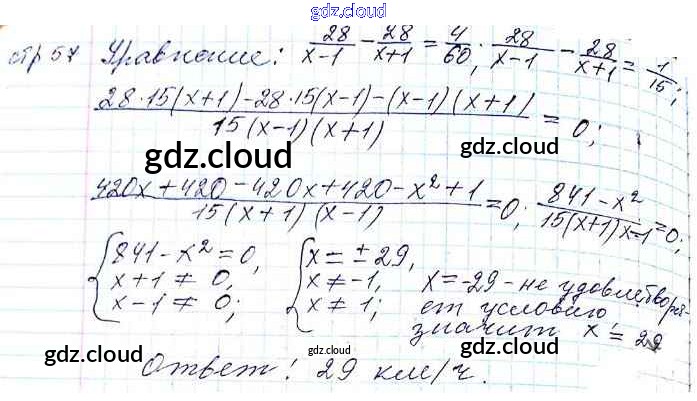 gdz.cloud
стр 57 Уравнение: 28/(x-1) - 28/(x+1) = 4/60; 28/(x-1) - 28/(x+1) = 1/15;
(28·15(x+1)-28·15(x-1)-(x-1)(x+1))/(15(x-1)(x+1)) = 0;
gdz.cloud gdz.cloud
(420x+420-420x+420-x²+1)/(15(x+1)(x-1)) = 0; (841-x²)/(15(x+1)x-1) = 0;
{841-x²=0, {x=±29,
x+1≠0, x≠-1, x=-29 - не удовлетворя-
x-1≠0; x≠1; ет условию
значит x=29
gdz.cloud gdz.cloud gdz.cloud
Ответ: 29 км/ч.
gdz.cloud